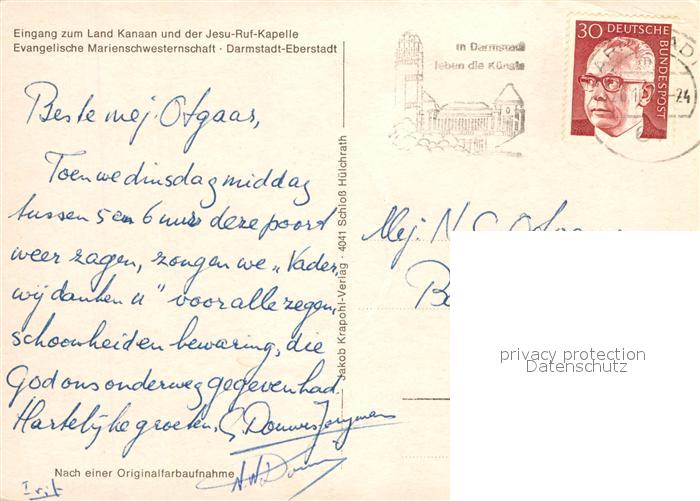 Eingang zum Land Kanaan und der Jesu-Ruf-Kapelle
Evangelische Marienschwesternschaft · Darmstadt-Eberstadt
Beste mej. Otgaar,
Toen we dinsdagmiddag
tussen 5 en 6 uur deze poort
weer zagen, zongen we „Vader,
wij danken u" voor alle zegen,
schoonheid en bewaring, die
God ons onderweg gegeven had.
Hartelijke groeten,
Nach einer Originalfarbaufnahme
Jakob Krapohl-Verlag · 4041 Schloß Hülchrath
in Darmstadt
leben die Künste
30 DEUTSCHE
BUNDESPOST
24
Mej. N. C. Otgaar
privacy protection
Datenschutz